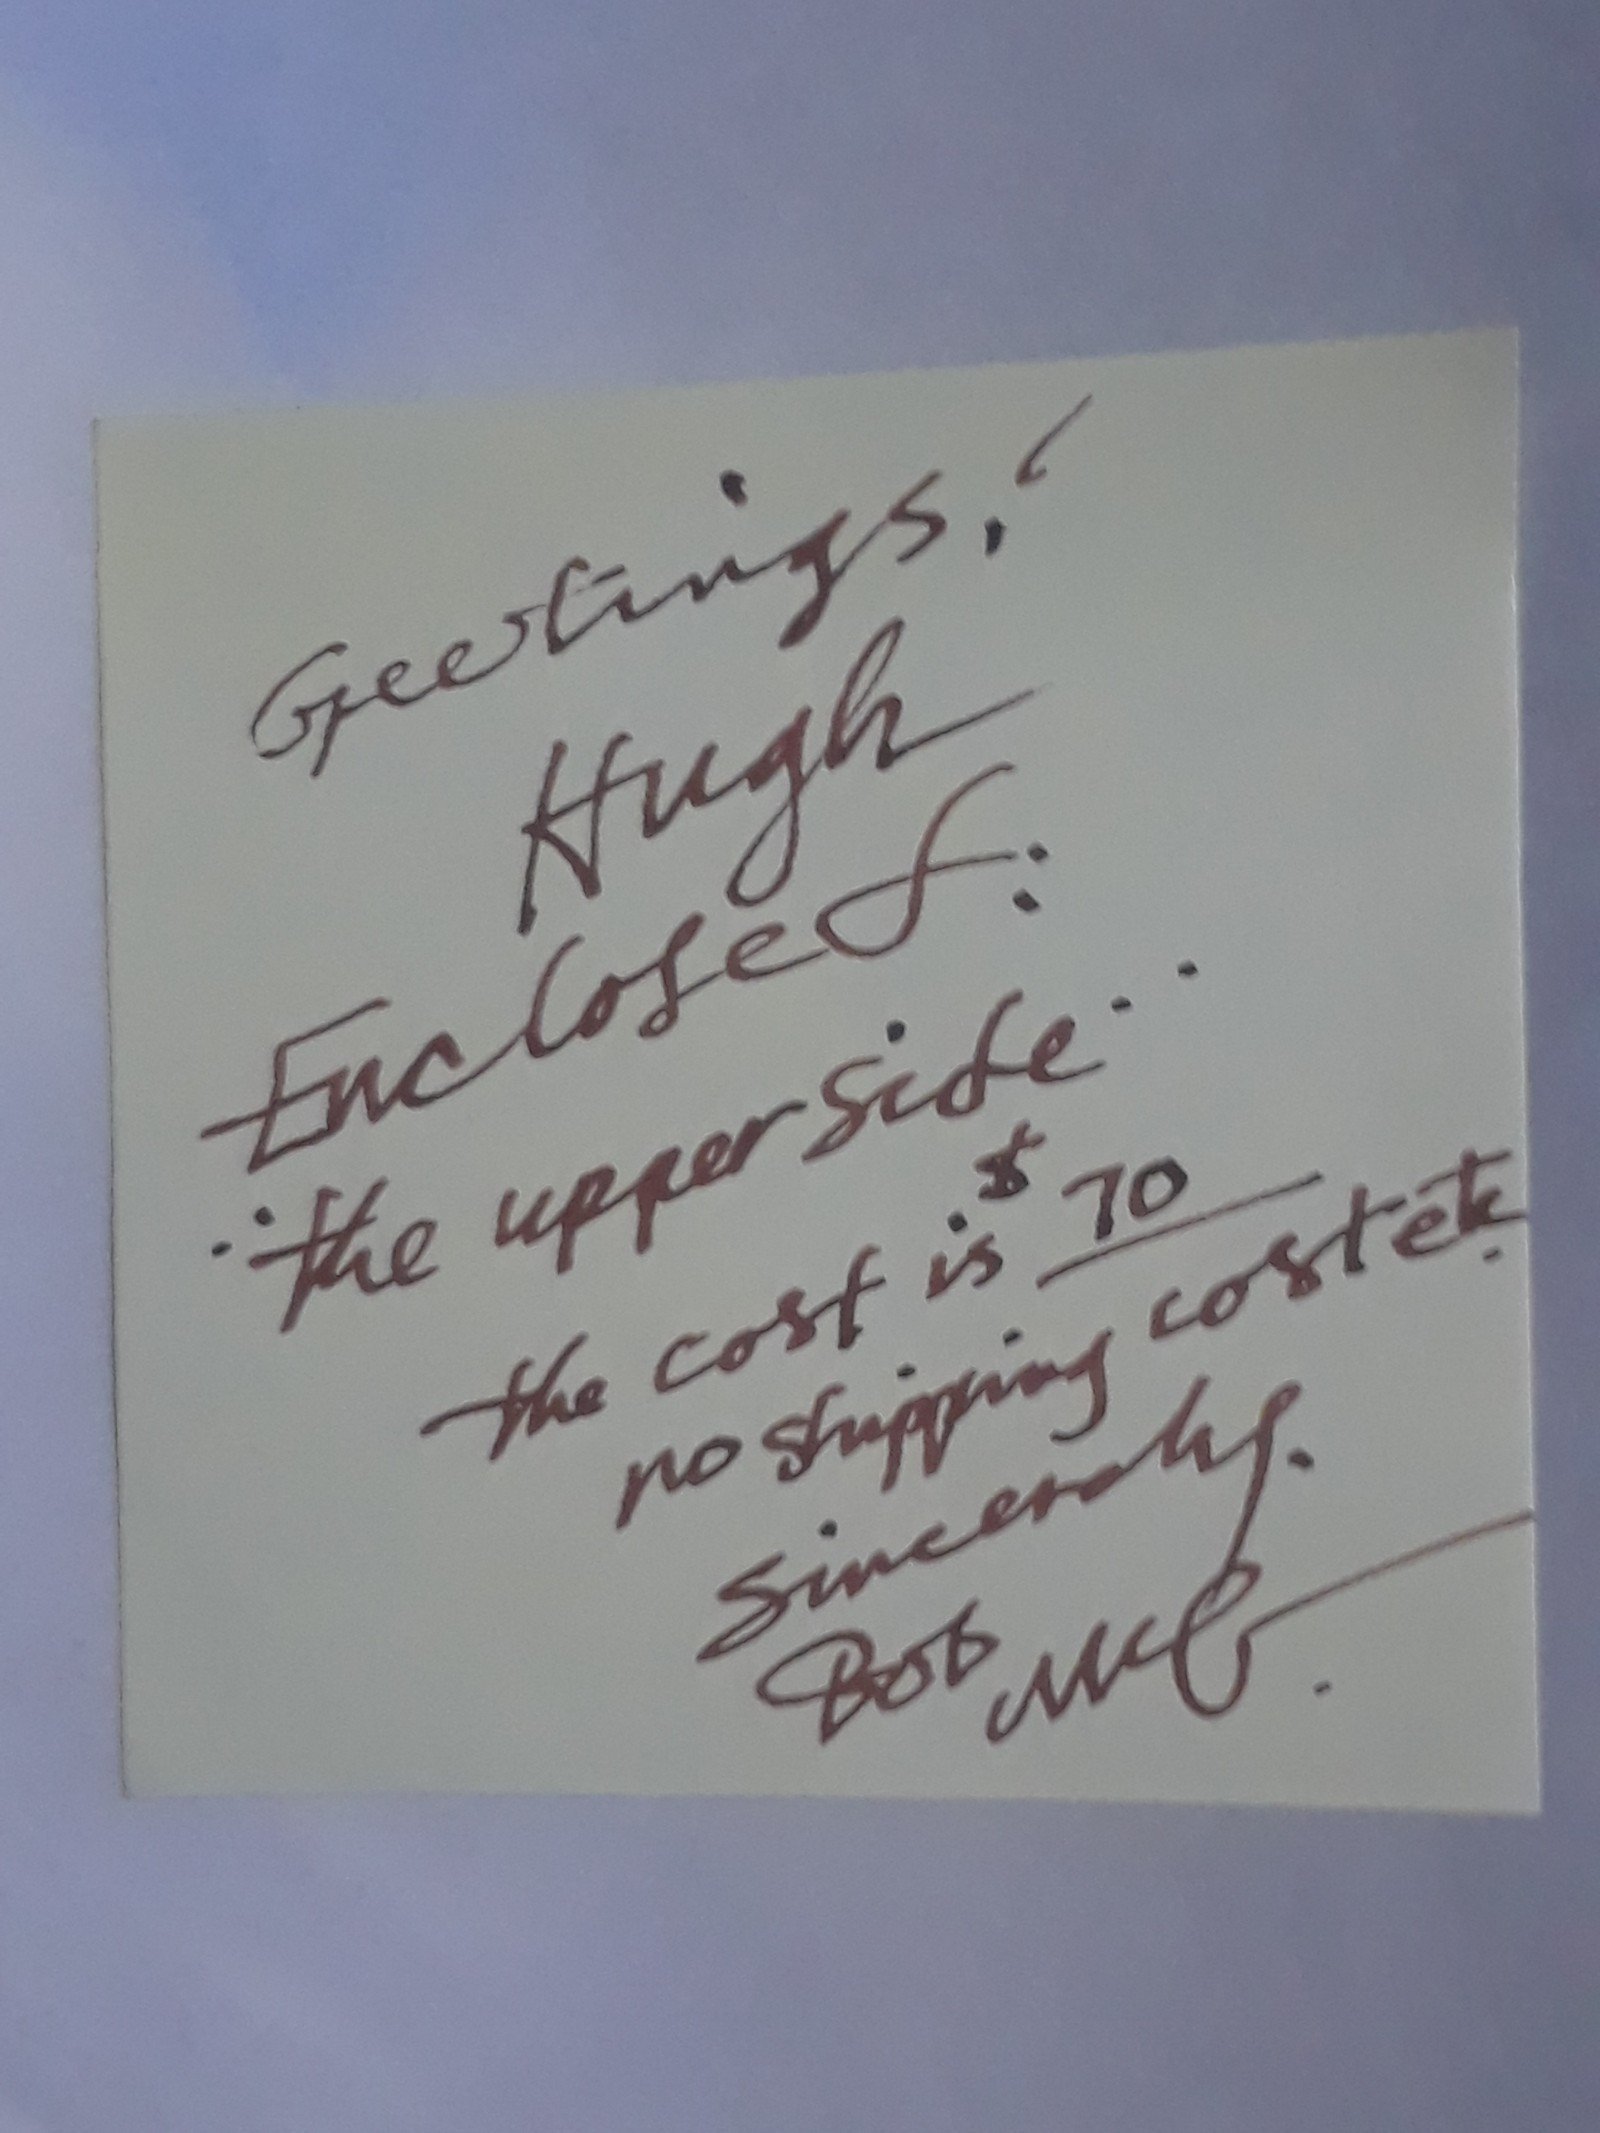 Greetings!
Hugh
Enclosed:
..the upper side..
the cost is $70
no shipping cost etc.
sincerely.
Bob